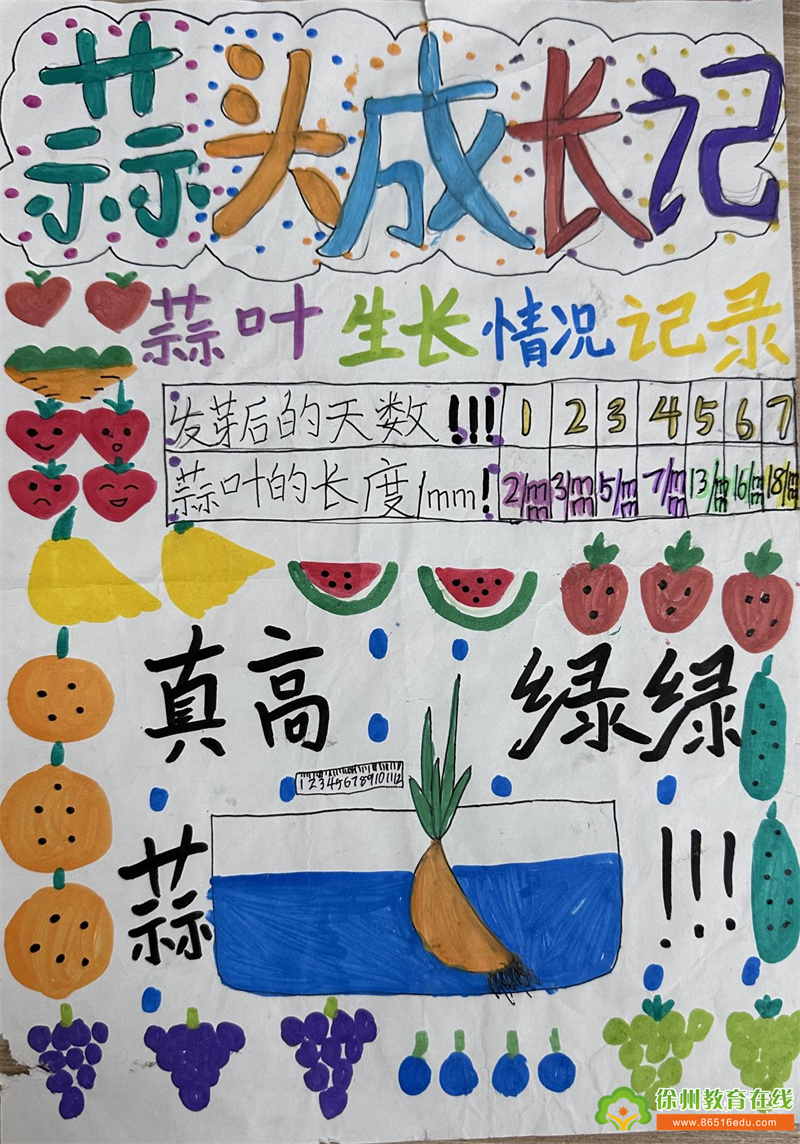 蒜头成长记
蒜叶生长情况记录
发芽后的天数!!! 1 2 3 4 5 6 7
蒜叶的长度/mm! 2/mm 3/mm 5/mm 7/mm 13/mm 16/mm 18/mm
真高 绿绿
1 2 3 4 5 6 7 8 9 10 11 12
蒜 !!!
徐州教育在线
www.86516edu.com